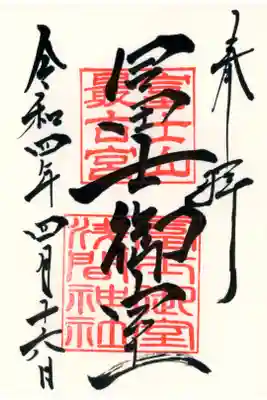 奉拝
富士山
最古宮
冨士御室
冨士御室
浅間神社
令和四年四月十六日